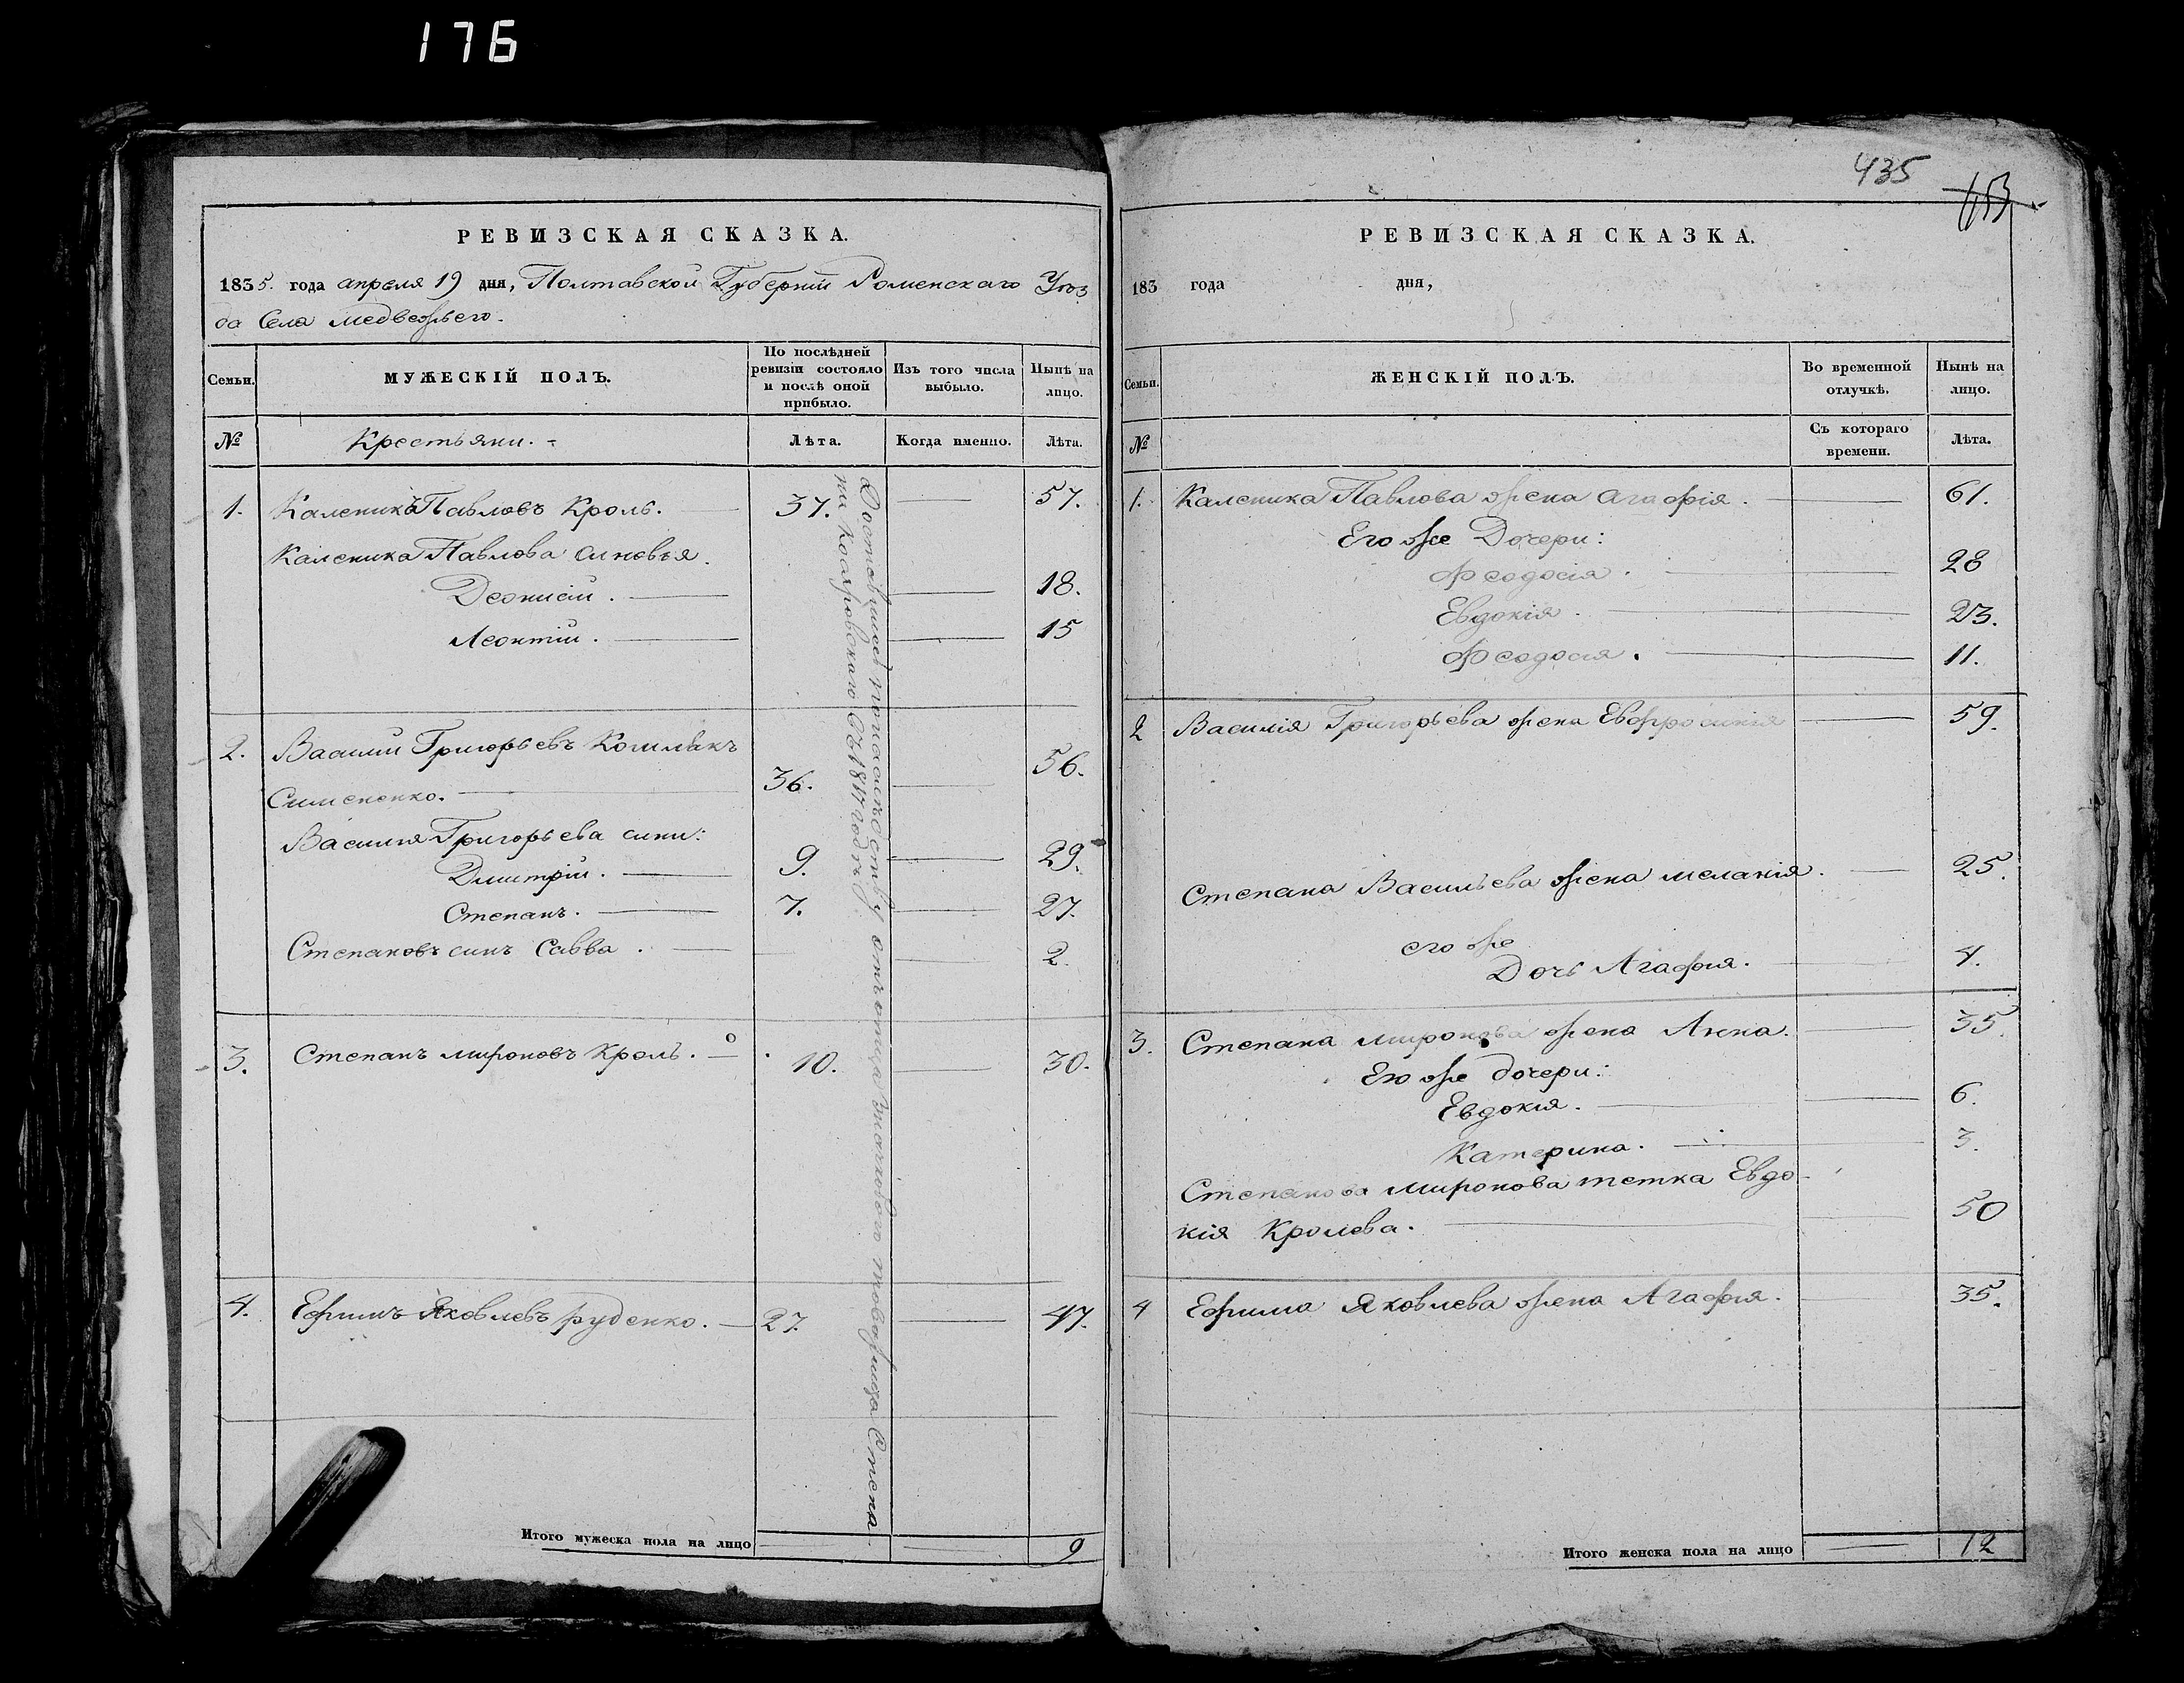 176
РЕВИЗСКАЯ СКАЗКА.
1835. года апреля 19 дня, Полтавской Губернiи Роменскаго Уѣз
да Села медвежьего.
Семьи.
МУЖЕСКIЙ ПОЛЪ.
По послѣдней ревизiи состояло и послѣ оной прибыло.
Изъ того числа выбыло.
Нынѣ на лицо.
№ Крестьяни. Лѣта. Когда именно. Лѣта.
1. Каленикъ Павловъ Кроль. 37. 57.
Каленика Павлова синовья.
Деонисiй. 18.
Леонтiй. 15
2. Василий Григорьевъ
Симененко. 36. 56.
Василия Григорьева сини:
Дмитрiй. 9. 29.
Степанъ. 7. 27.
Степановъ синъ Савва. 2.
3. Степанъ мироновъ Кроль. 10. 30.
4. Ефимъ Яковлевъ руденко. 27. 47.
Доставшiеся по наследству отъ отца
1817 года
Итого мужеска пола на лицо 9
435
РЕВИЗСКАЯ СКАЗКА.
183 года дня,
Семьи.
ЖЕНСКIЙ ПОЛЪ.
Во временной отлучкѣ.
Нынѣ на лицо.
№ Съ котораго времени. Лѣта.
1. Каленика Павлова жена агафiя. 61.
Его же Дочери:
Феодосiя. 28
Евдокiя. 23.
Феодосия. 11.
2 Василiя Григорьева жена Евфросинiя 59.
Степана Васильева жена меланiя. 25.
его же
Дочь Агафия. 4.
3. Степана миронова жена Анна. 35.
Его же дочери:
Евдокия. 6.
Катерина. 3.
Степанова миронова тетка Евдо-
кiя Кролева. 50
4 Ефима Яковлева жена Агафия. 35.
Итого женска пола на лицо 12